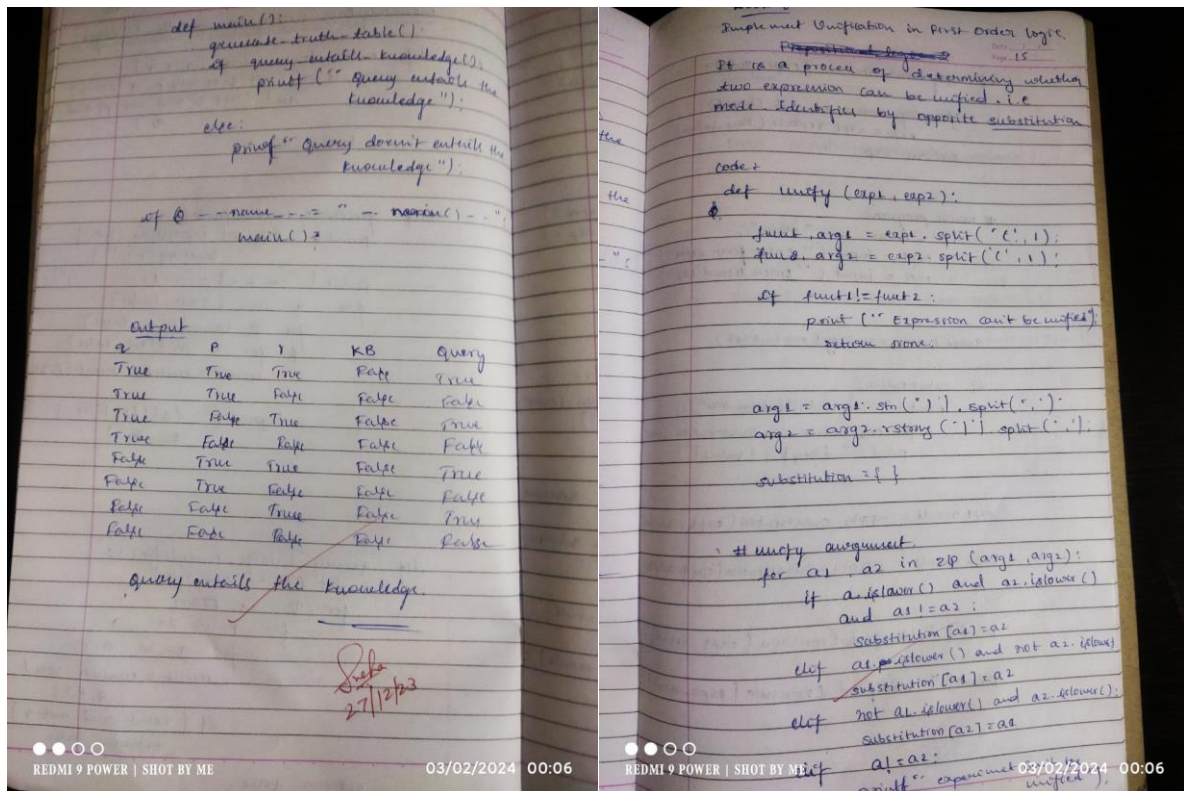 def main():
generate-truth-table()
if query-entails-knowledge():
printf (" Query entails the
knowledge"):
else:
printf " Query doesn't entails the
knowledge"):
if __name__ = "
main():
Output
q P r KB Query
True True True False True
True True False False False
True False True False True
True False False False False
False True True False True
False True False False False
False False True False True
False False False False False
Query entails the knowledge.
Sneha
27/12/23
REDMI 9 POWER | SHOT BY ME
03/02/2024 00:06
the
the
Implement Unification in First Order logic
Page 15
It is a process of determining whether
two expression can be unified. i.e
made Identifies by opposite substitution
code :
def unify (exp1, exp2):
funct, arg1 = exp1. split('(', 1);
func2, arg2 = exp2. split('(', 1);
if funct1 != funct2 :
print (" Expression can't be unified");
return none;
arg1 = arg1. split(",").
arg2 = arg2. split(',').
substitution = { }
# unify
for a1, a2 in zip (arg1, arg2):
if a.islower() and a2.islower()
and a1 != a2 :
substitution [a1] = a2
elif a1.islower() and not a2.islower()
substitution [a1] = a2
elif not a1.islower() and a2.islower():
substitution [a2] = a1
elif a1 = a2:
printf " be
unified").
REDMI 9 POWER | SHOT BY ME
03/02/2024 00:06